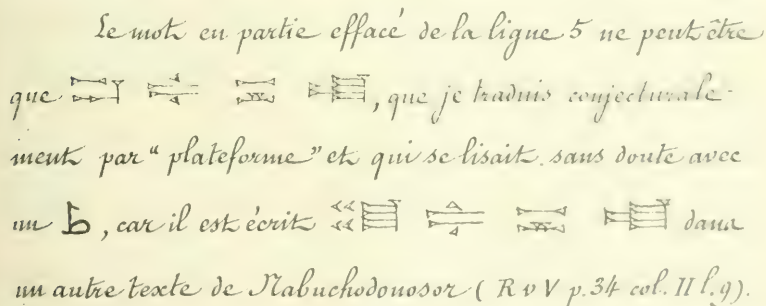 Le mot en partie effacé de la ligne 5 ne peut être
que , que je traduis conjecturale-
ment par "plateforme" et qui se lisait sans doute avec
un , car il est écrit dans
un autre texte de Nabuchodonosor (R v V p. 34 col. II l. 9).